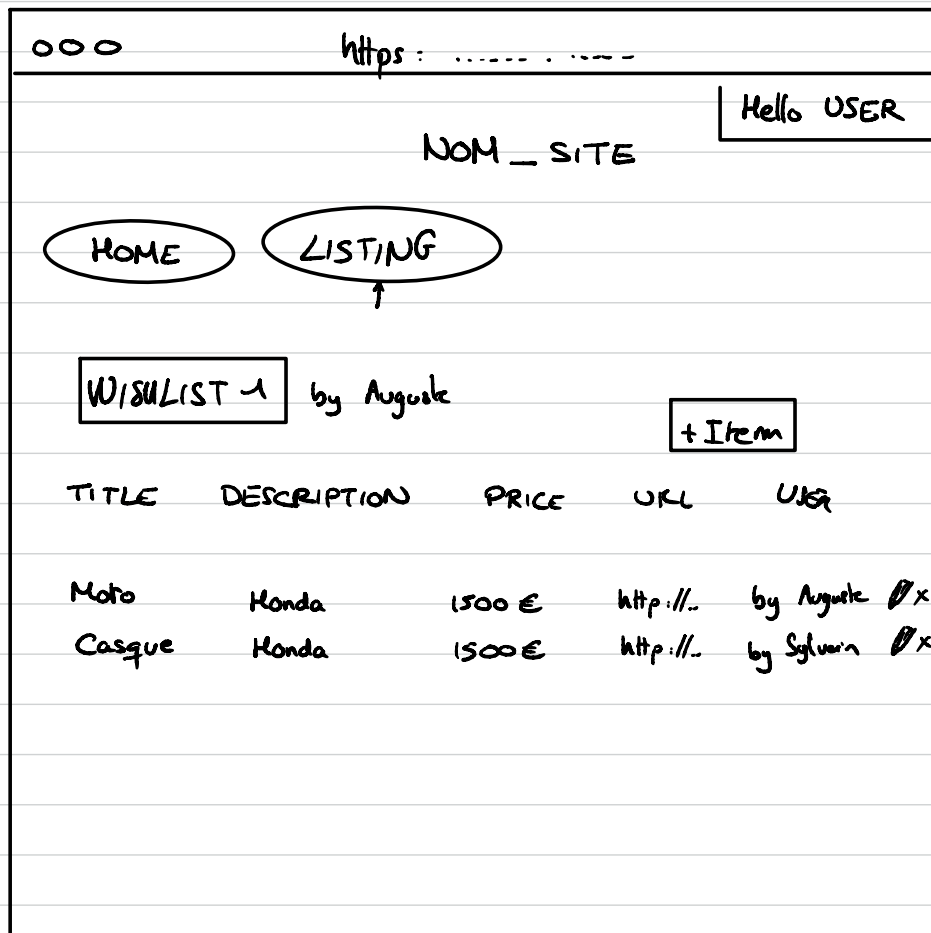 https : ...... . .....
Hello USER
NOM_SITE
HOME LISTING
WISHLIST 1 by Auguste
+ Item
TITLE DESCRIPTION PRICE URL USER
Moto Honda 1500 € http://.. by Auguste x
Casque Honda 1500 € http://.. by Sylvain x